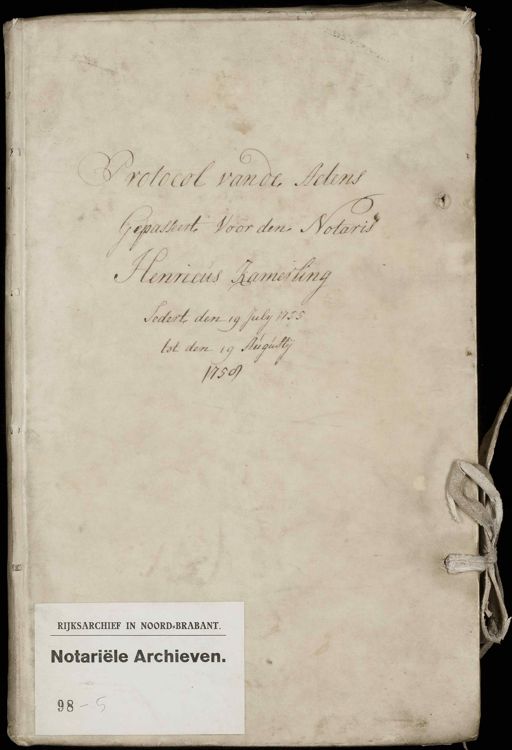 Protocol vande Actens
Gepasseert Voor den Notaris
Henricus Kamerling
Sedert den 19 July 1755
tot den 19 Augustij
1758
RIJKSARCHIEF IN NOORD-BRABANT.
Notariële Archieven.
98-5